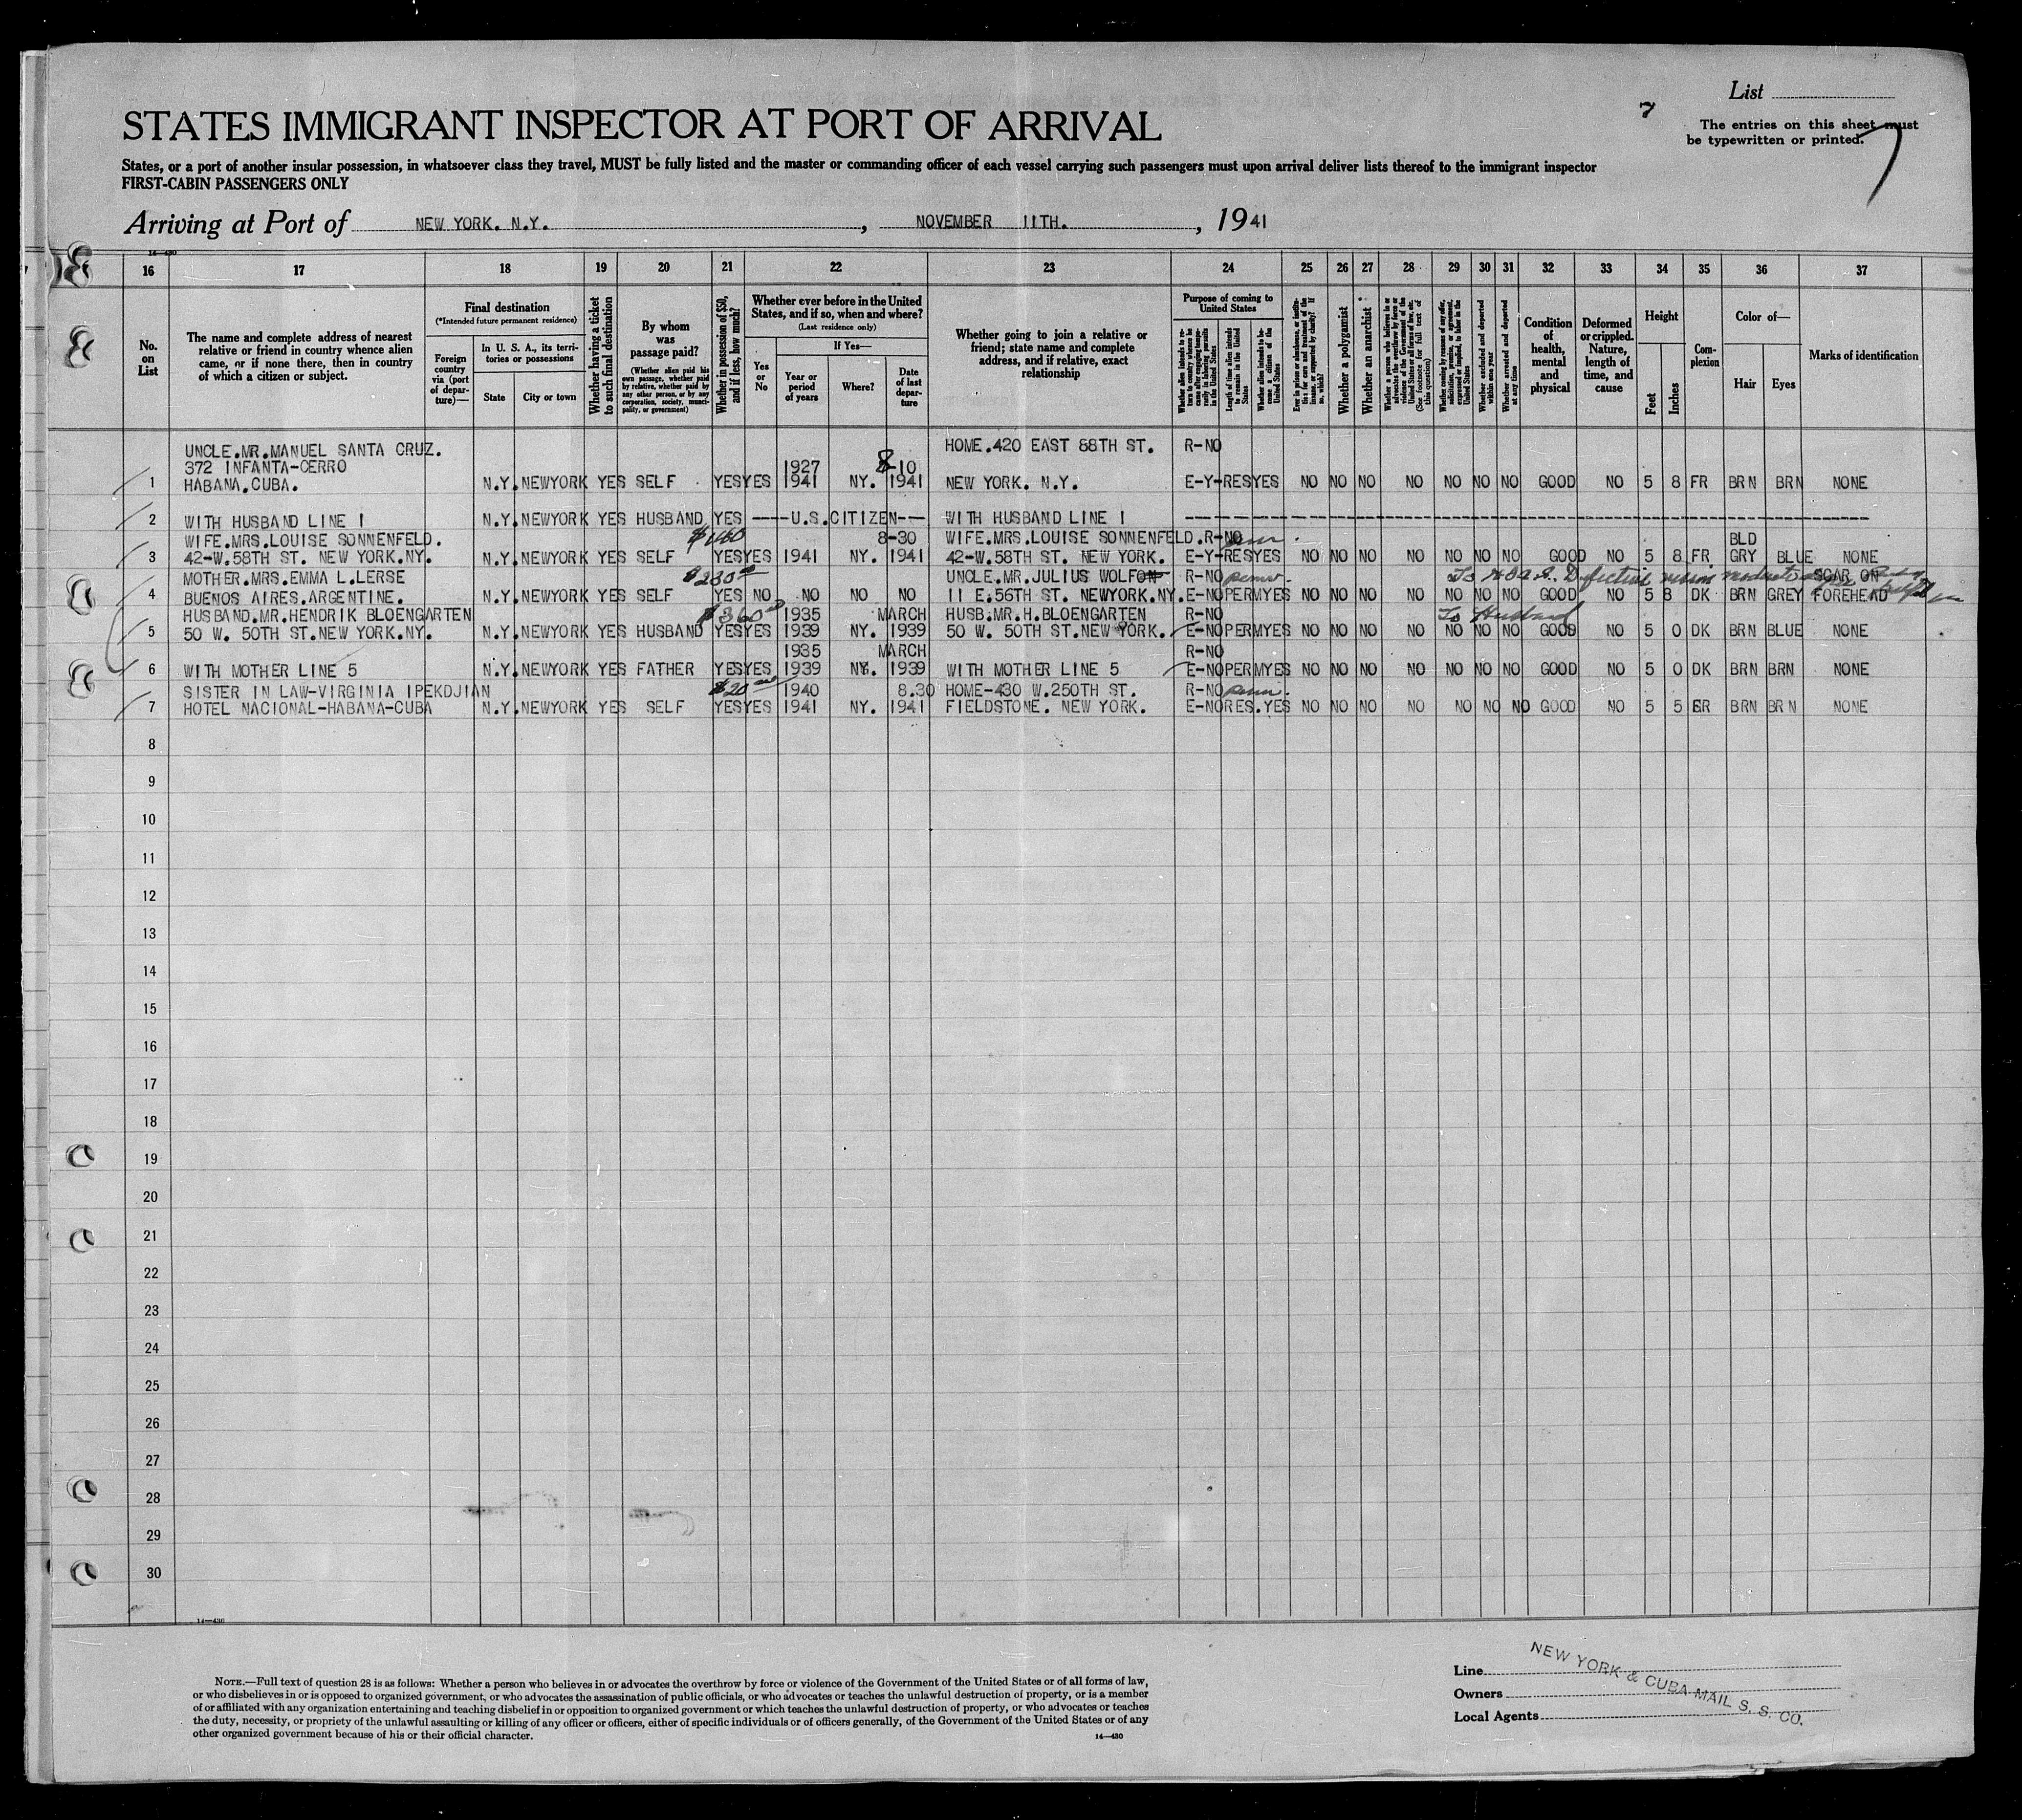 List
7
The entries on this sheet must
be typewritten or printed.
7
STATES IMMIGRANT INSPECTOR AT PORT OF ARRIVAL
States, or a port of another insular possession, in whatsoever class they travel, MUST be fully listed and the master or commanding officer of each vessel carrying such passengers must upon arrival deliver lists thereof to the immigrant inspector
FIRST-CABIN PASSENGERS ONLY
Arriving at Port of NEW YORK. N.Y. , NOVEMBER 11TH. , 1941
14—430
16 17 18 19 20 21 22 23 24 25 26 27 28 29 30 31 32 33 34 35 36 37
No. on List
The name and complete address of nearest relative or friend in country whence alien came, or if none there, then in country of which a citizen or subject.
Final destination
(*Intended future permanent residence)
Foreign country via (port of departure)—
In U. S. A., its territories or possessions
State
City or town
Whether having a ticket to such final destination
By whom was passage paid?
(Whether alien paid his own passage, whether paid by relative, whether paid by any other person, or by any corporation, society, municipality, or government)
Whether in possession of $50, and if less, how much?
Whether ever before in the United States, and if so, when and where?
(Last residence only)
Yes or No
If Yes—
Year or period of years
Where?
Date of last departure
Whether going to join a relative or friend; state name and complete address, and if relative, exact relationship
Purpose of coming to United States
Length of time alien intends to remain in the United States
Whether alien intends to become a citizen of the United States
Whether a polygamist
Whether an anarchist
(See footnote for full text of this question)
Whether arrested and deported at any time
Condition of health, mental and physical
Deformed or crippled. Nature, length of time, and cause
Height
Feet
Inches
Complexion
Color of—
Hair
Eyes
Marks of identification
UNCLE.MR.MANUEL SANTA CRUZ. HOME.420 EAST 88TH ST. R-NO
372 INFANTA-CERRO 1927 8-10
1 HABANA.CUBA. N.Y. NEWYORK YES SELF YES YES 1941 NY. 1941 NEW YORK. N.Y. E-Y-RES YES NO NO NO NO NO NO NO GOOD NO 5 8 FR BRN BRN NONE
2 WITH HUSBAND LINE 1 N.Y. NEWYORK YES HUSBAND YES ----U.S.CITIZEN-- WITH HUSBAND LINE 1
WIFE.MRS.LOUISE SONNENFELD. 8-30 WIFE.MRS.LOUISE SONNENFELD. R-NO BLD
3 42-W.58TH ST. NEW YORK.NY. N.Y. NEWYORK YES SELF YES YES 1941 NY. 1941 42-W.58TH ST. NEW YORK. E-Y-RES YES NO NO NO NO NO NO NO GOOD NO 5 8 FR GRY BLUE NONE
MOTHER.MRS.EMMA L.LERSE UNCLE.MR.JULIUS WOLFON R-NO Defective vision SCAR ON
4 BUENOS AIRES.ARGENTINE. N.Y. NEWYORK YES SELF YES NO NO NO NO 11 E.56TH ST. NEWYORK.NY. E-NO PERM YES NO NO NO NO NO NO NO GOOD NO 5 8 DK BRN GREY FOREHEAD
HUSBAND.MR.HENDRIK BLOENGARTEN $360 1935 MARCH HUSB.MR.H.BLOENGARTEN R-NO To Husband
5 50 W. 50TH ST.NEW YORK.NY. N.Y. NEWYORK YES HUSBAND YES YES 1939 NY. 1939 50 W. 50TH ST.NEW YORK. E-NO PERM YES NO NO NO NO NO NO NO GOOD NO 5 0 DK BRN BLUE NONE
1935 MARCH R-NO
6 WITH MOTHER LINE 5 N.Y. NEWYORK YES FATHER YES YES 1939 NY. 1939 WITH MOTHER LINE 5 E-NO PERM YES NO NO NO NO NO NO NO GOOD NO 5 0 DK BRN BRN NONE
SISTER IN LAW-VIRGINIA IPEKDJIAN $20 1940 8.30 HOME-430 W.250TH ST. R-NO
7 HOTEL NACIONAL-HABANA-CUBA N.Y. NEWYORK YES SELF YES YES 1941 NY. 1941 FIELDSTONE. NEW YORK. E-NO RES. YES NO NO NO NO NO NO NO GOOD NO 5 5 BRN BRN NONE
8
9
10
11
12
13
14
15
16
17
18
19
20
21
22
23
24
25
26
27
28
29
30
14—430
NOTE.—Full text of question 28 is as follows: Whether a person who believes in or advocates the overthrow by force or violence of the Government of the United States or of all forms of law,
or who disbelieves in or is opposed to organized government, or who advocates the assassination of public officials, or who advocates or teaches the unlawful destruction of property, or is a member
of or affiliated with any organization entertaining and teaching disbelief in or opposition to organized government or which teaches the unlawful destruction of property, or who advocates or teaches
the duty, necessity, or propriety of the unlawful assaulting or killing of any officer or officers, either of specific individuals or of officers generally, of the Government of the United States or of any
other organized government because of his or their official character.
14—430
Line
Owners
Local Agents
NEW YORK & CUBA MAIL S. S. CO.